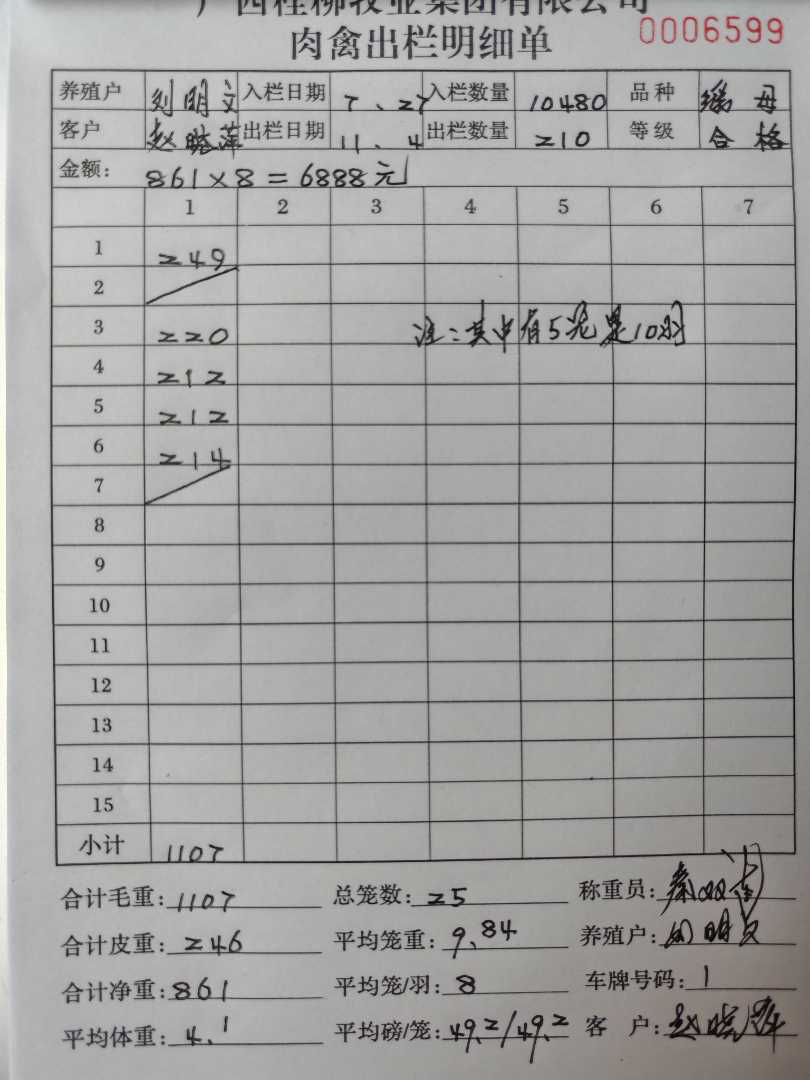 广西桂柳牧业集团有限公司
肉禽出栏明细单 0006599
养殖户 刘明文 入栏日期 7、27 入栏数量 10480 品种 瑶母
客户 赵晓萍 出栏日期 11、4 出栏数量 210 等级 合格
金额: 861×8=6888元
1 2 3 4 5 6 7
1 249
2
3 220 注:其中有5笼是10羽
4 212
5 212
6 214
7
8
9
10
11
12
13
14
15
小计 1107
合计毛重: 1107 总笼数: 25 称重员:
合计皮重: 246 平均笼重: 9.84 养殖户: 刘明文
合计净重: 861 平均笼/羽: 8 车牌号码: 1
平均体重: 4.1 平均磅/笼: 49.2/49.2 客户: 赵晓萍